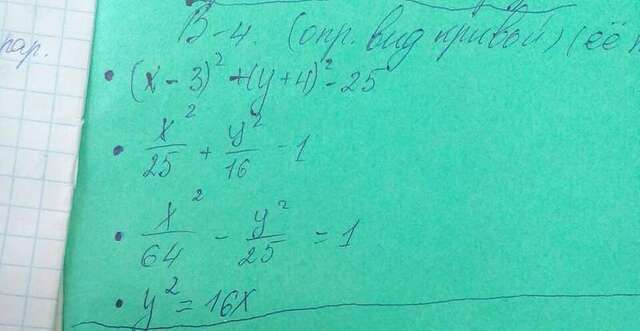 пар.
В-4. (опр. вид кривой) (её
• (x - 3)² + (y + 4)² = 25
• x²/25 + y²/16 = 1
• x²/64 - y²/25 = 1
• y² = 16x